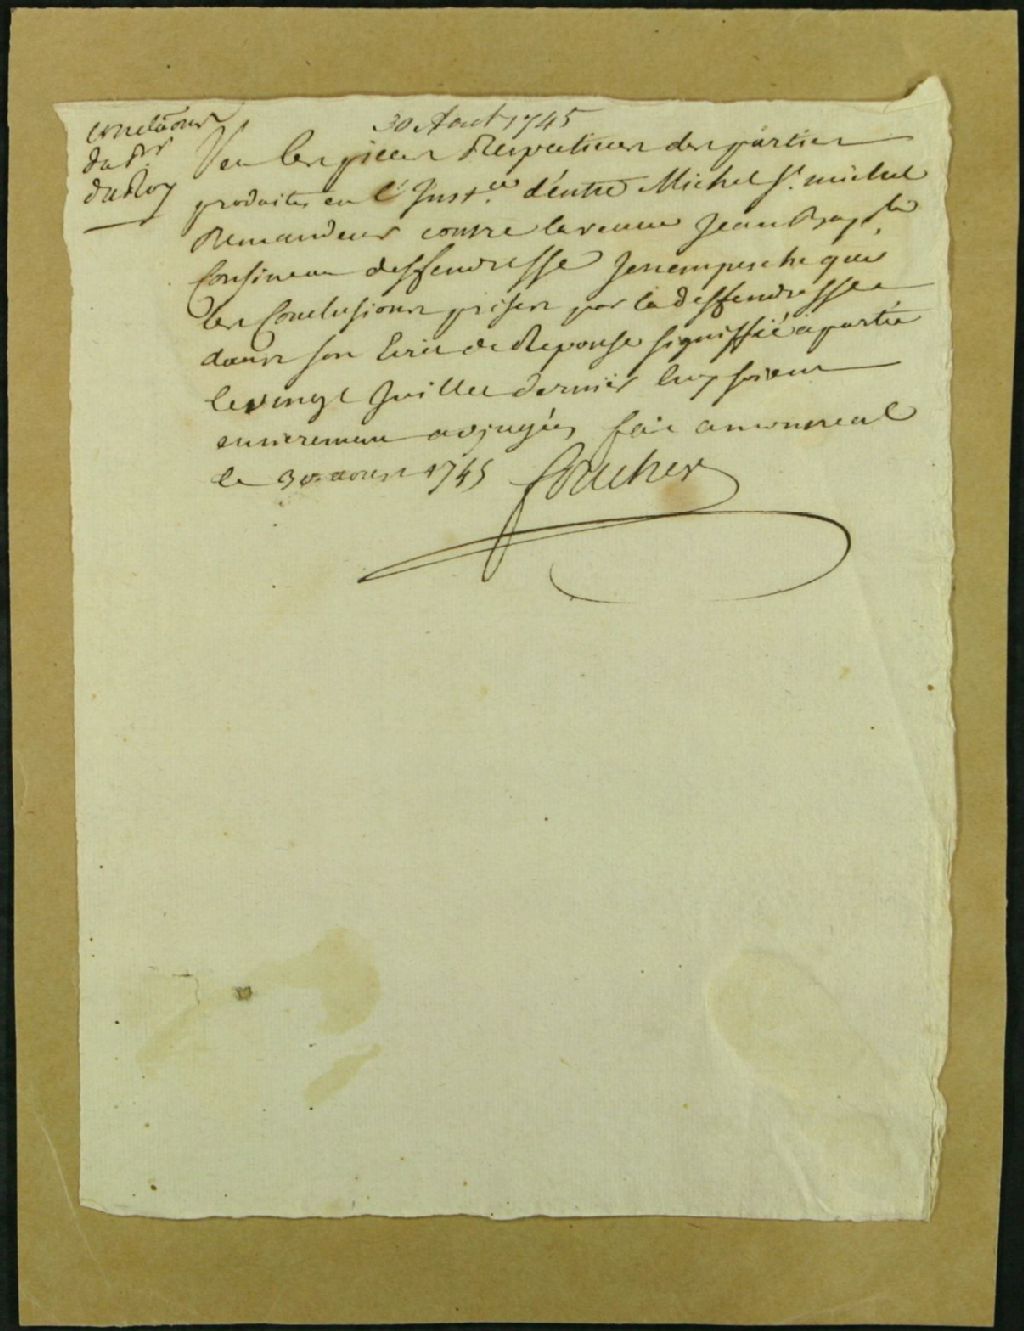 30 Aout 1745
Conclãons
du Pr
du Roy
Veu les pieces Respectives des parties
produites en l'Inst.ce d'entre Michel St. michel
Demandeur contre la veuve Jean Bapte
Cousineau deffendresse Jenempesche que
les Conclusions prises par la deffendresse
dans son Ecrit de Reponse signiffié a partie
le vingt Juillet dernier luy soient
entierement adjugées fait a montreal
le 30e aoust 1745 foucher